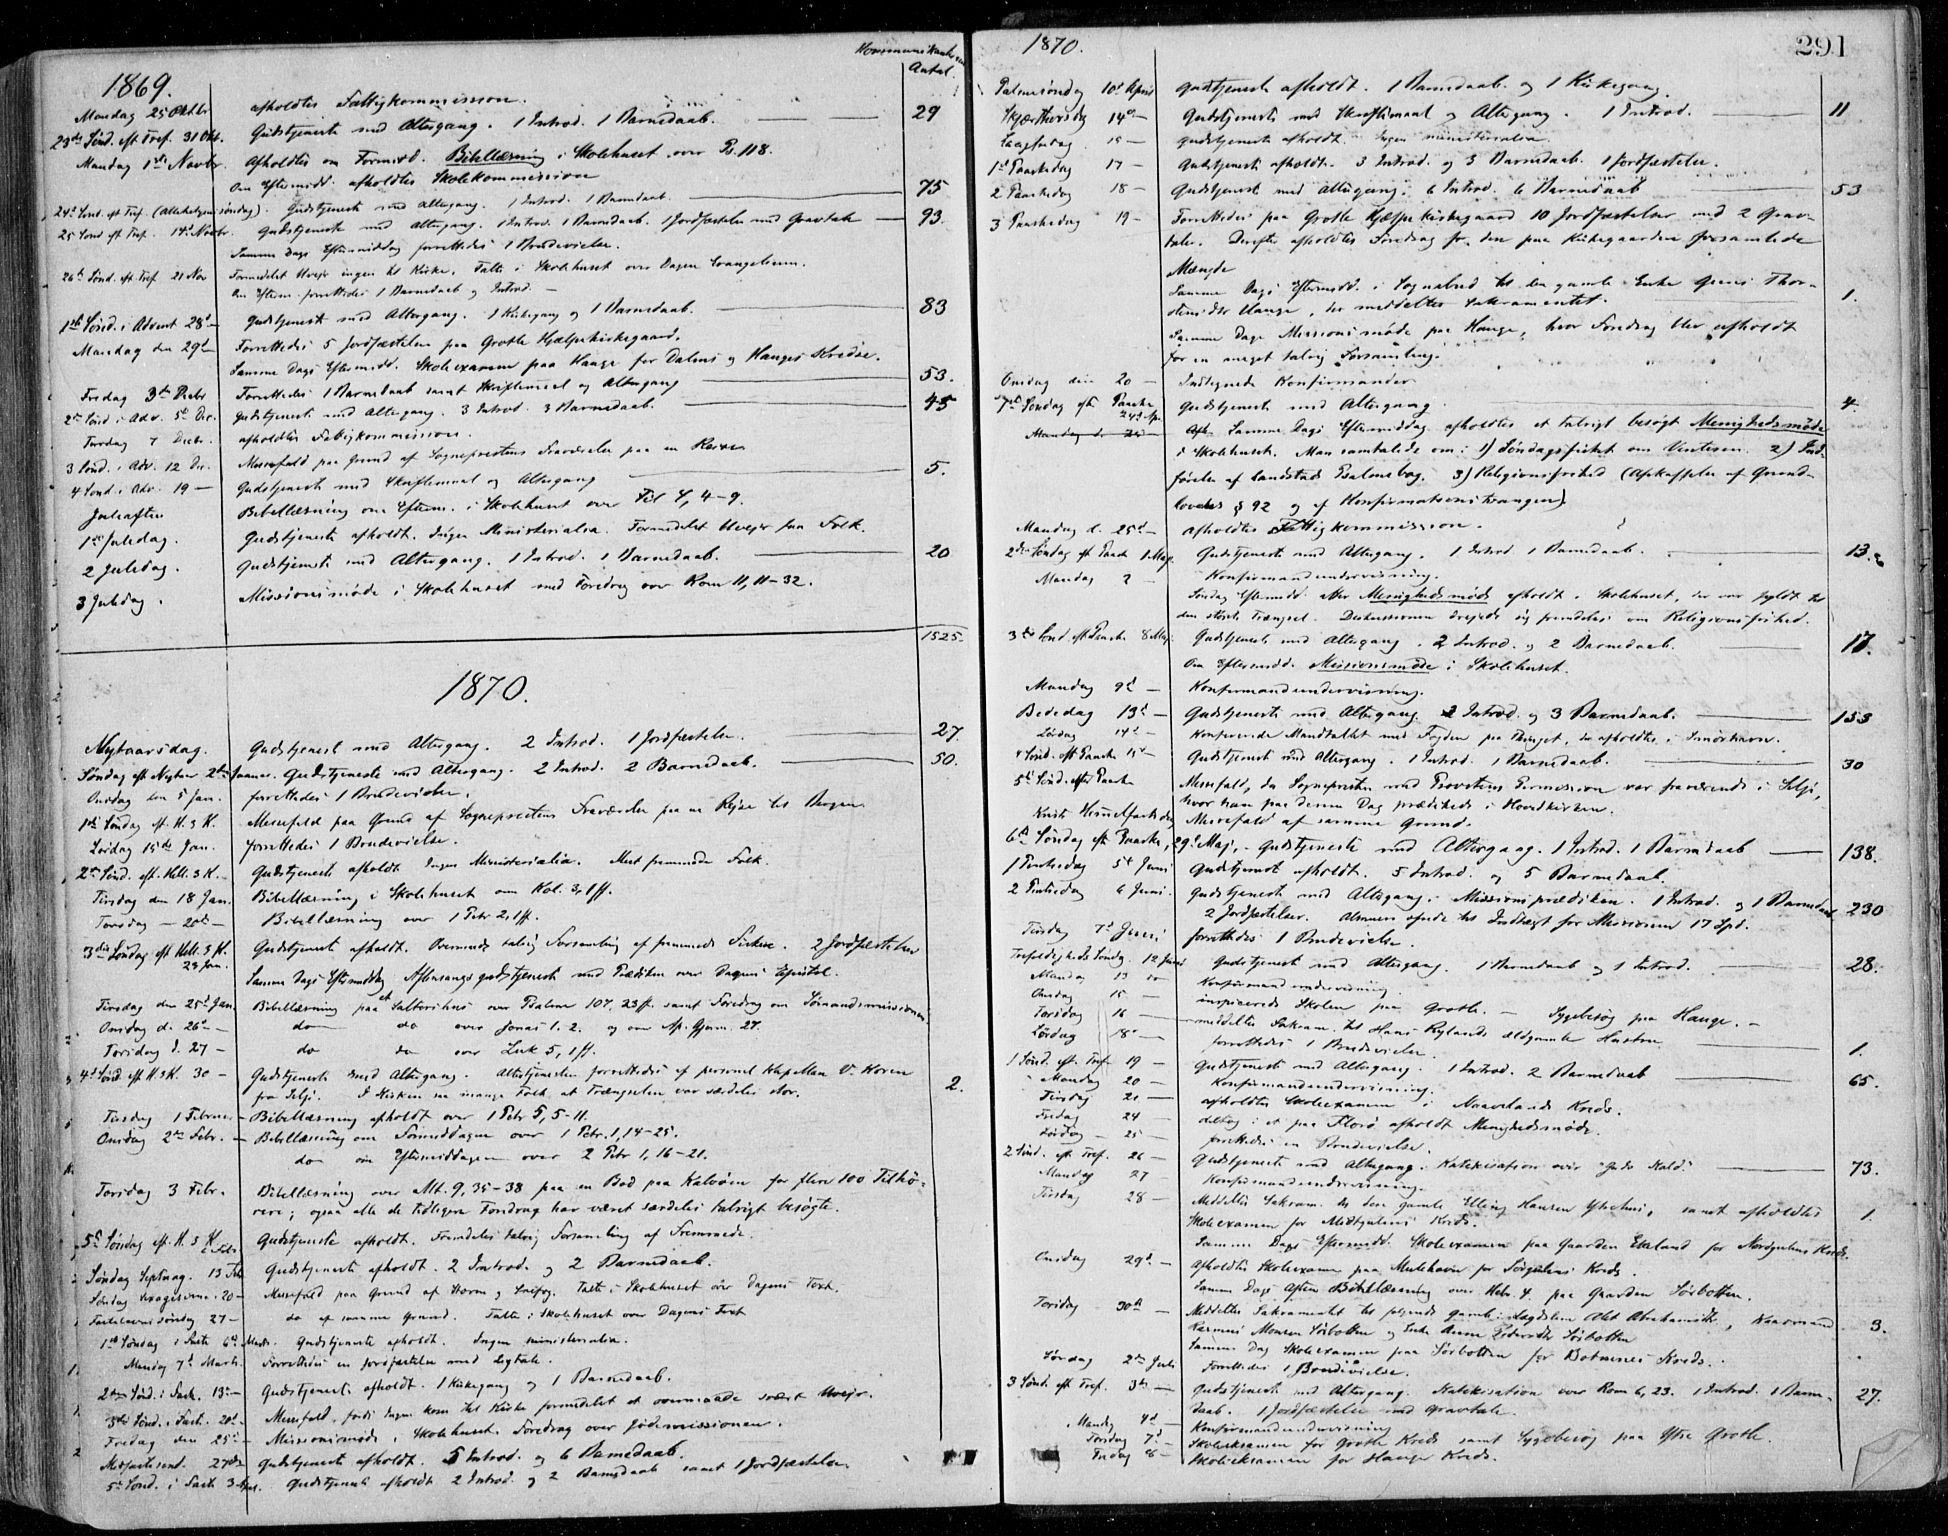 1869.
Kommunikanternes
Antal.
Mandag 25 Oktbr. afholdtes Fattigkommission.
23de Sønd. eft Tref. 31 Okt. Gudstjeneste med Altergang. 1 Introd. 1 Barnedaab. 29
Mandag 1ste Novbr. Afholdtes om Formidd. Bibellæsning i Skolehuset over Ps. 118.
Om Eftermidd. afholdtes Skolekommission
24d Sønd. eft Tref. (Allehelgensøndag). Gudstjeneste med Altergang. 1 Introd. 1 Barnedaab. 75
25 Sønd eft Tref. 14d Novbr. Gudstjeneste med Altergang. 1 Introd. 1 Barnedaab. 1 Jordfæstelse med Gravtale 93.
Samme Dags Eftermiddag forrettedes 1 Brudevielse.
26de Sønd. eft. Tref 21 Nov Formedelst Uvejr ingen til Kirke. Talte i Skolehuset over Dagens Evangelium.
Om Efterm. forrettedes 1 Barnedaab og Introd. –
1ste Sønd. i Advent 28d – Gudstjeneste med Altergang. 1 Kirkegang og 1 Barnedaab. 83
Mandag den 29d – Forrettedes 5 Jordfæstelser paa Grotle Hjælpekirkegaard.
Samme Dags Eftermidd. Skoleexamen paa Hauge for Dalens og Hauges Kredse.
Fredag 3de Decbr Forrettedes 1 Barnedaab samt Skriftemaal og Altergang 53.
2den Sønd i Adv. 5te Dec. Gudstjeneste med Altergang. 3 Introd. 3 Barnedaab. 45
Torsdag 7 Decbr. afholdtes Fattigkommission.
3 Sønd. i Adv. 12 Dec. Messefald paa Grund af Sogneprestens Fraværelse paa en Rejse
4 Sønd. i Adv. 19 – Gudstjeneste med Skriftemaal og Altergang 5.
Juleaften Bibellæsning om Efterm. i Skolehuset over Fil 4, 4–9.
1ste Juledag. Gudstjeneste afholdt. Ingen Ministerialia. Formedelst Uvejr faa Folk.
2 Juledag. Gudstjeneste med Altergang. 1 Introd. 1 Barnedaab. 20
3 Juledag. Missionsmøde i Skolehuset med Foredrag over Rom 11, 11–32.
1525.
1870.
Nytaarsdag. Gudstjeneste med Altergang. 2 Introd. 1 Jordfæstelse. 27
Søndag eft Nytaar 2den Januar. Gudstjeneste med Altergang. 2 Introd. 2 Barnedaab. 50.
Onsdag den 5 Jan. forrettedes 1 Brudevielse.
1ste Søndag eft. H. 3 K. Messefald paa Grund af Sogneprestens Fraværelse paa en Rejse til Bergen
Lørdag 15de Jan. forrettedes 1 Brudevielse.
2den Sønd. eft. Hell. 3 K. – Gudstjeneste afholdt. Ingen Ministerialia. Mest fremmede Folk.
Tirsdag den 18 Jan. Bibellæsning i Skolehuset om Kol. 3, 1 ff.
Torsdag – 20de – Bibellæsning over 1 Petr 2, 1 ff.
3die Søndag eft Hell. 3 K. 23 Jan. Gudstjeneste afholdt. Overmaade talrig Forsamling af fremmede Fiskere. 2 Jordfæstelser
Samme Dags Eftermiddag Aftensangsgudstjeneste med Prædiken over Dagens Epistel.
Tirsdag den 25d Jan. Bibellæsning paa et Salteriskus over Psalme 107, 23 ff. samt Foredrag om Sømandsmissionen.
Onsdag d. 26de – do do over Jonas 1. 2. og om Ap. Gjern. 27.
Torsdag d. 27 – do do over Luk 5, 1 ff.
4d Sønd. eft H. 3 K. 30 – Gudstjeneste med Altergang. Altertjenesten forrettedes af personel Kapellan U. Koren 2.
fra Selje. I Kirken saa mange Folk at Trængselen var særdeles stor.
Tirsdag 1 Februar – Bibellæsning afholdt over 1 Petr 5, 5–11.
Onsdag 2den Febr. – Bibellæsning om Formiddagen over 1 Petr. 1, 14–25.
do om Eftermiddagen over 2 Petr 1, 16–21.
Torsdag 3 Febr. Bibellæsning over Mt. 9, 35–38 paa en Bod paa Kalvøen for flere 100 Tilhø-
rere; ogsaa alle de tidligere Foredrag har været særdeles talrigt besøgte.
5te Søndag eft. H. 3 K. 6 Febr. Gudstjeneste afholdt. Fremdeles talrig Forsamling af Fremmede.
Søndag Septuag. 13 Feb. Gudstjeneste afholdt. 2 Introd. og 2 Barnedaab.
Søndag Sexagesima. 20 – Messefald paa Grund af Storm og Snefog. Talte i Skolehuset over Dagens Text.
Fastelavnssøndag 27 – do af samme Grund. Talte i Skolehuset over Dagens Text
1ste Søndag i Faste 6te Marts. Gudstjeneste afholdt. Ingen ministerialia.
Mandag 7d Marts. Forrettedes en Jordfæstelse med Ligtale.
2den Sønd. i Fast. 13 – Gudstjeneste afholdt. 1 Kirkegang og 1 Barnedaab.
3die Sønd. i Fast. 20d – Messefald, fordi Ingen kom til Kirke formedelst et overmaade svært Uvejr.
Fredag den 25de – Missionsmøde i Skolehuset. Foredrag over Jødemissionen.
Midfastesønd. 27de Gudstjeneste afholdt. 5 Introd. og 6 Barnedaab.
5te Sønd. i Fast 3 Apr. Gudstjeneste afholdt 2 Introd. og 2 Barnedaab samt 1 Jordfæstelse.
1870.
291
Palmesøndag 10d April Gudstjeneste afholdt. 1 Barnedaab og 1 Kirkegang.
Skjærthorsdag 14de – Gudstjeneste med Skriftemaal og Altergang. 1 Introd. 11
Langfredag 15 – Gudstjeneste afholdt. Ingen ministerialia.
1ste Paaskedag 17 – Gudstjeneste afholdt. 3 Introd. og 3 Barnedaab. 1 Jordfæstelse.
2 Paaskedag 18 – Gudstjeneste med Altergang. 6 Introd. 6 Barnedaab 53
3 Paaskedag 19 – Forrettedes paa Grotle Hjælpekirkegaard 10 Jordfæstelser med 2 Grav-
taler. Derefter afholdtes Foredrag for den paa Kirkegaarden forsamlede
Mængde
Samme Dags Eftermidd. i Sognebud til den gamle Enke Thor-
Hauge, der meddeltes Sakramentet. 1.
Samme Dags Missionsmøde paa Hauge, hvor Foredrag blev afholdt
for en meget talrig Forsamling.
Onsdag den 20 – Indtegnede Konfirmander
1ste Søndag eft. Paaske 24d Ap. Gudstjeneste med Altergang. 4.
Mandag d. 25 – Samme Dags Eftermiddag afholdtes et talrigt besøgt Menighedsmøde
i Skolehuset. Man samtalede om: 1) Søndagsfisket om Vinteren. 2) Ind-
førelse af Landstads Psalmebog. 3) Religionsfrihed (Afskaffelse af Grund-
lovens § 92 og af Konfirmationstvangen)
Mandag d. 25d – afholdtes Fattigkommission.
2den Søndag eft Paask 1 Maj. Gudstjeneste med Altergang. 1 Introd. 1 Barnedaab. 13.
Mandag 2 – Konfirmandundervisning.
Søndag Eftermidd. blev Menighedsmøde afholdt i Skolehuset, der var fyldt til
den største Trængsel. Diskussionen drejede sig fremdeles om Religionsfrihed.
3die Sønd. eft Paaske 8 Maj. Gudstjeneste med Altergang. 2 Introd. og 2 Barnedaab. 17.
Om Eftermidd. Missionsmøde i Skolehuset.
Mandag 9d – Konfirmandundervisning.
Bededag 13d – Gudstjeneste med Altergang. 2 Introd. og 3 Barnedaab. 153
Lørdag 14d – Konfererede Mandtallet med Fogden paa Thinget, der afholdtes i Smørhavn.
4 Sønd. eft Paaske 15de Gudstjeneste med Altergang. 1 Introd. 1 Barnedaab. 30
5te Sønd. efter Paaske Messefald, da Sognepresten med Provstens Permission var fraværende i Selje,
hvor han paa denne Dag prædikede i Hovedkirken.
Kristi Himmelfartsdag Messefald af samme Grund.
6te Søndag eft Paaske, 29d Maj. – Gudstjeneste med Altergang. 1 Introd. 1 Barnedaab 138.
1 Pintsedag 5te Juni Gudstjeneste afholdt. 5 Introd. og 5 Barnedaab.
2 Pintsedag 6 Juni. Gudstjeneste med Altergang. Missionsprædiken. 1 Introd. og 1 Barnedaab 230
2 Jordfæstelser. Almuen ofrede til Indtægt for Missionen 17 Spd.
Tirsdag 7d Juni forrettedes 1 Brudevielse.
Trefoldigheds Søndag. 12 Juni Gudstjeneste med Altergang. 1 Barnedaab og 1 Introd. 28.
Mandag 13 – Konfirmandundervisning.
Onsdag 15 – inspicerede Skolen paa Grotle. – Sygebesøg paa Hauge. –
Torsdag 16 – meddeltes Sakram. til Hans Rylands ældgamle Hustru 1.
Lørdag 18 – forrettedes 1 Brudevielse.
1 Sønd. eft. Tref. 19 – Gudstjeneste med Altergang. 1 Introd. 2 Barnedaab 65.
Mandag 20 – Konfirmandundervisning.
Tirsdag 21 – afholdtes Skoleexamen i Kreds.
Fredag 24 – deltog i et paa Florø afholdt Menighedsmøde.
Lørdag – 25 – forrettedes en Brudevielse.
2 Sønd. eft. Tref. 26 – Gudstjeneste med Altergang. Katekisation over "Guds Kald" 73.
Mandag 27 Konfirmandundervisning.
Tirsdag 28 – Meddeltes Sakram. til den gamle Elling Hansen, samt afholdtes 1.
Skoleexamen for Midtgulens Kreds.
Samme Dags Eftermidd. Skoleexamen paa Gaarden Ekeland for Nordgulens Kreds.
Onsdag 29d – Afholdtes Skoleexamen paa for Sørgulens Kreds.
Samme Dags Aften Bibellæsning over Hebr. 4. paa Gaarden Sørbotten.
Torsdag 30te – Meddeltes Sakramentet til følgende gamle: Abrahamsdtr., Kaarmand 3.
Rasmus Monsen Sørbotten og Enke Anne Sørbotten
Samme Dag Skoleexamen paa Sørbotten for Botnenes Kreds.
Lørdag 2den Juli Forrettedes 1 Brudevielse.
3 Sønd. eft Tref. 3die – Gudstjeneste med Altergang. Katekisation over Rom 6, 23. 1 Introd. 1 Barne- 27.
daab. 1 Jordfæstelse med Gravtale.
Mandag 4d – Konfirmandundervisning
Torsdag 7d Skoleeksamen for Grotle Kreds samt Sygebesøg paa Ytre Grotle.
Fredag 8 – Skoleeksamen for Hauge Kreds.